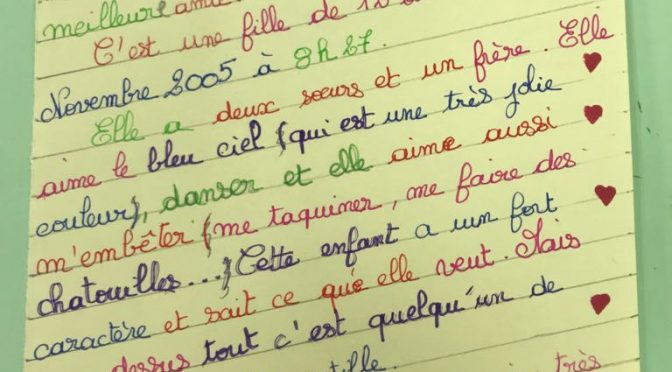 meilleure amie
C'est une fille de 12
Novembre 2005 à 8h27.
Elle a deux sœurs et un frère. Elle
aime le bleu ciel (qui est une très jolie
couleur), danser et elle aime aussi
m'embêter (me taquiner, me faire des
chatouilles...) Cette enfant a un fort
caractère et sait ce qu'elle veut. Mais
dessus tout c'est quelqu'un de
très